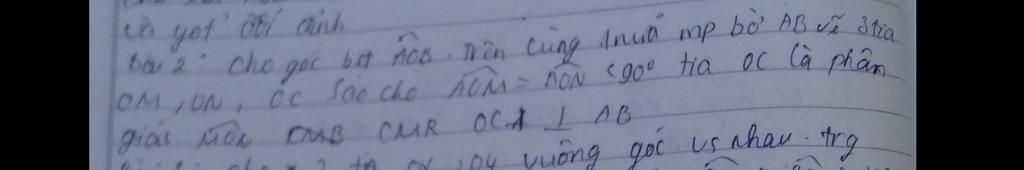 và yet' đối đỉnh
bài 2: cho góc bẹt AOB. Trên cùng 1 nửa mp bờ AB vẽ 3 tia
OM, ON, OC sao cho AOM = BON < 90° tia OC là phân
giác MON CMR OC ⊥ AB
vuông góc vs nhau. trg